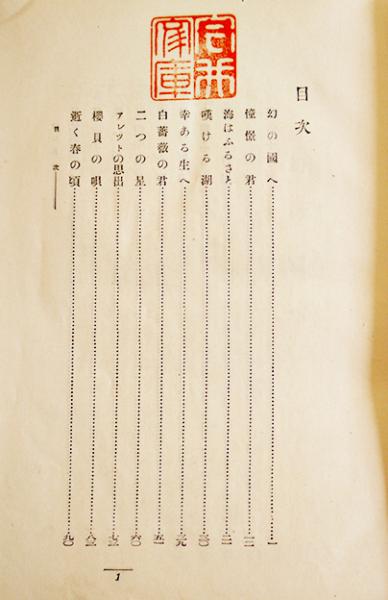 目次
幻の國へ……一
憧憬の君……一二
海はふるさと……二一
嘆ける湖……三〇
幸ある生へ……三九
白薔薇の君……五一
二つの星……六〇
アレツトの思出……七三
櫻貝の唄……八三
逝く春の頃……九〇
目次
1